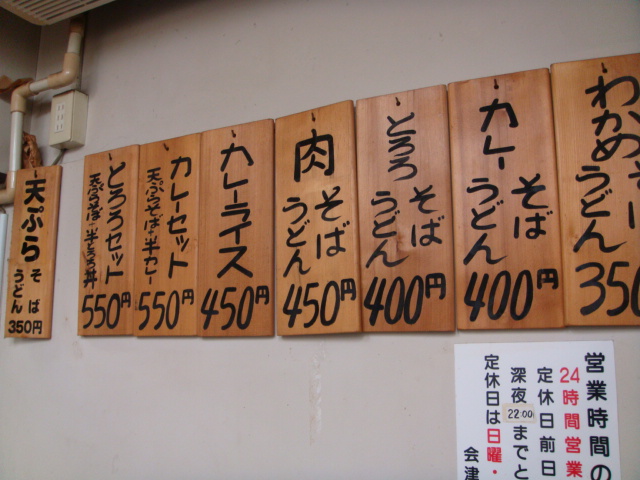 わかめそば
うどん
350
カレーそば
うどん
400円
とろろそば
うどん
400円
肉そば
うどん
450円
カレーライス
450円
カレーセット
天ぷらそば・半カレー
550円
とろろセット
天ぷらそば・半とろろ丼
550円
天ぷらそば
うどん
350円
営業時間の
24時間営業
定休日前日
深夜22:00までと
定休日は日曜・
会津